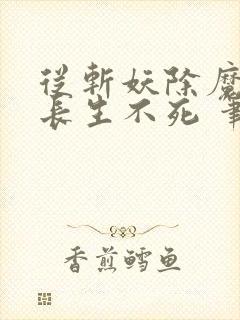 從斬妖除魔
長生不死
香煎鳕鱼